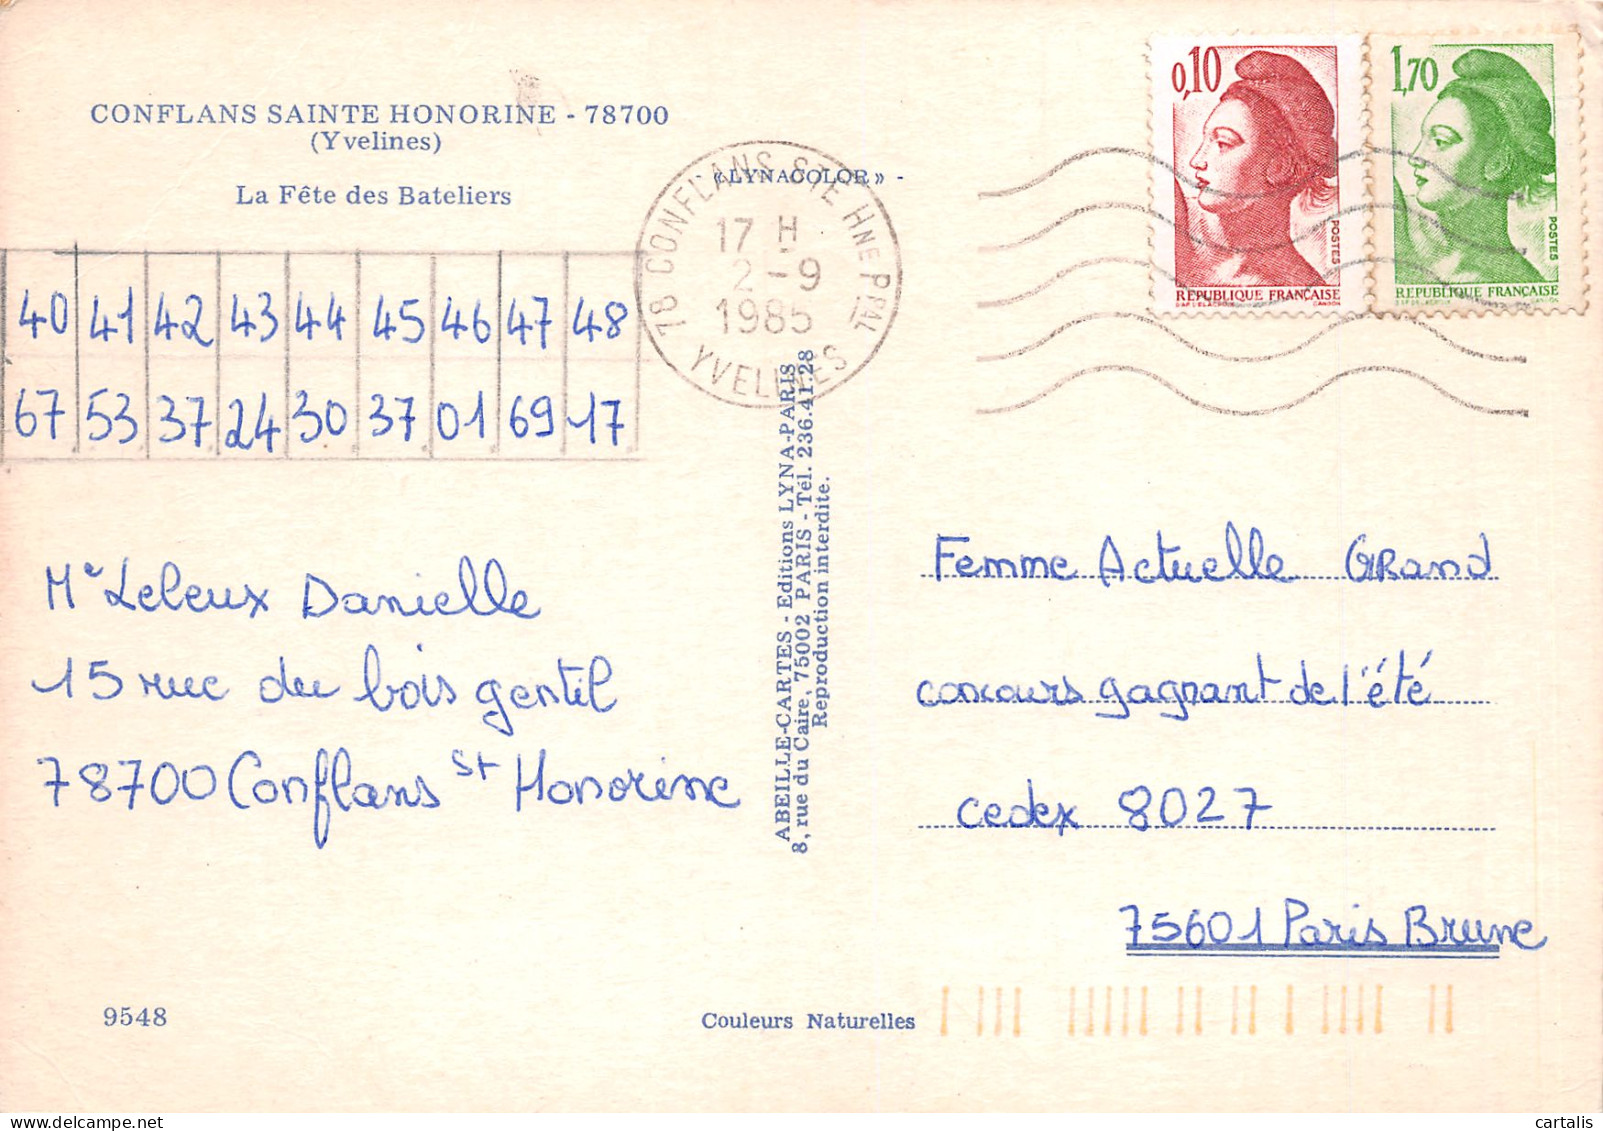 CONFLANS SAINTE HONORINE - 78700
(Yvelines)
La Fête des Bateliers
40 41 42 43 44 45 46 47 48
67 53 37 24 30 37 01 69 17
Me Leleux Danielle
15 rue du bois gentil
78700 Conflans St Honorine
9548
- «LYNACOLOR» -
78 CONFLANS STE HNE PPAL
17 H
2-9
1985
YVELINES
ABEILLE-CARTES - Editions LYNA-PARIS
8, rue du Caire, 75002 PARIS - Tél. 236.41.28
Reproduction interdite.
Couleurs Naturelles
0,10
POSTES
REPUBLIQUE FRANÇAISE
1,70
POSTES
REPUBLIQUE FRANÇAISE
Femme Actuelle Grand
concours gagnant de l'été
cedex 8027
75601 Paris Brune
cartalis